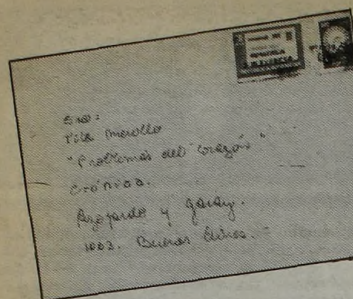 Sra:
Tita Merello
"Problemas del Corazón"
Crónica.
Azopardo y Garay.
1003. Buenos Aires.